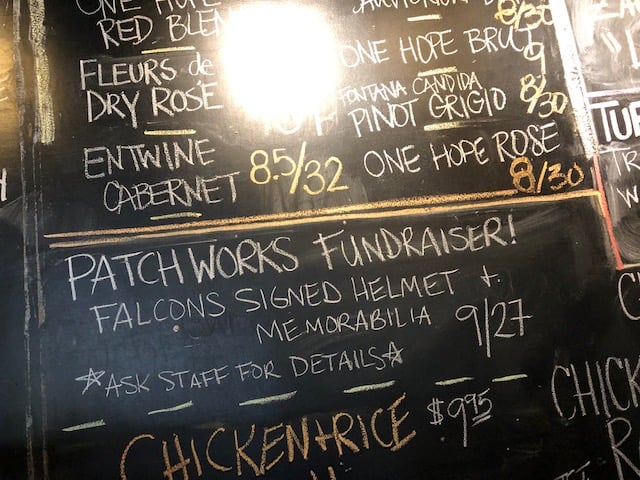 ONE HOPE
RED BLEN
FLEURS de
DRY ROSÉ
ENTWINE
CABERNET 8.5/32
8/30
ONE HOPE BRUT
9
FONTANA CANDIDA
PINOT GRIGIO 8/30
ONE HOPE ROSE
8/30
PATCHWORKS FUNDRAISER!
FALCONS SIGNED HELMET +
MEMORABILIA 9/27
☆ASK STAFF FOR DETAILS☆
CHICKEN+RICE $9.95
TUE
TR
W
CHICK
R